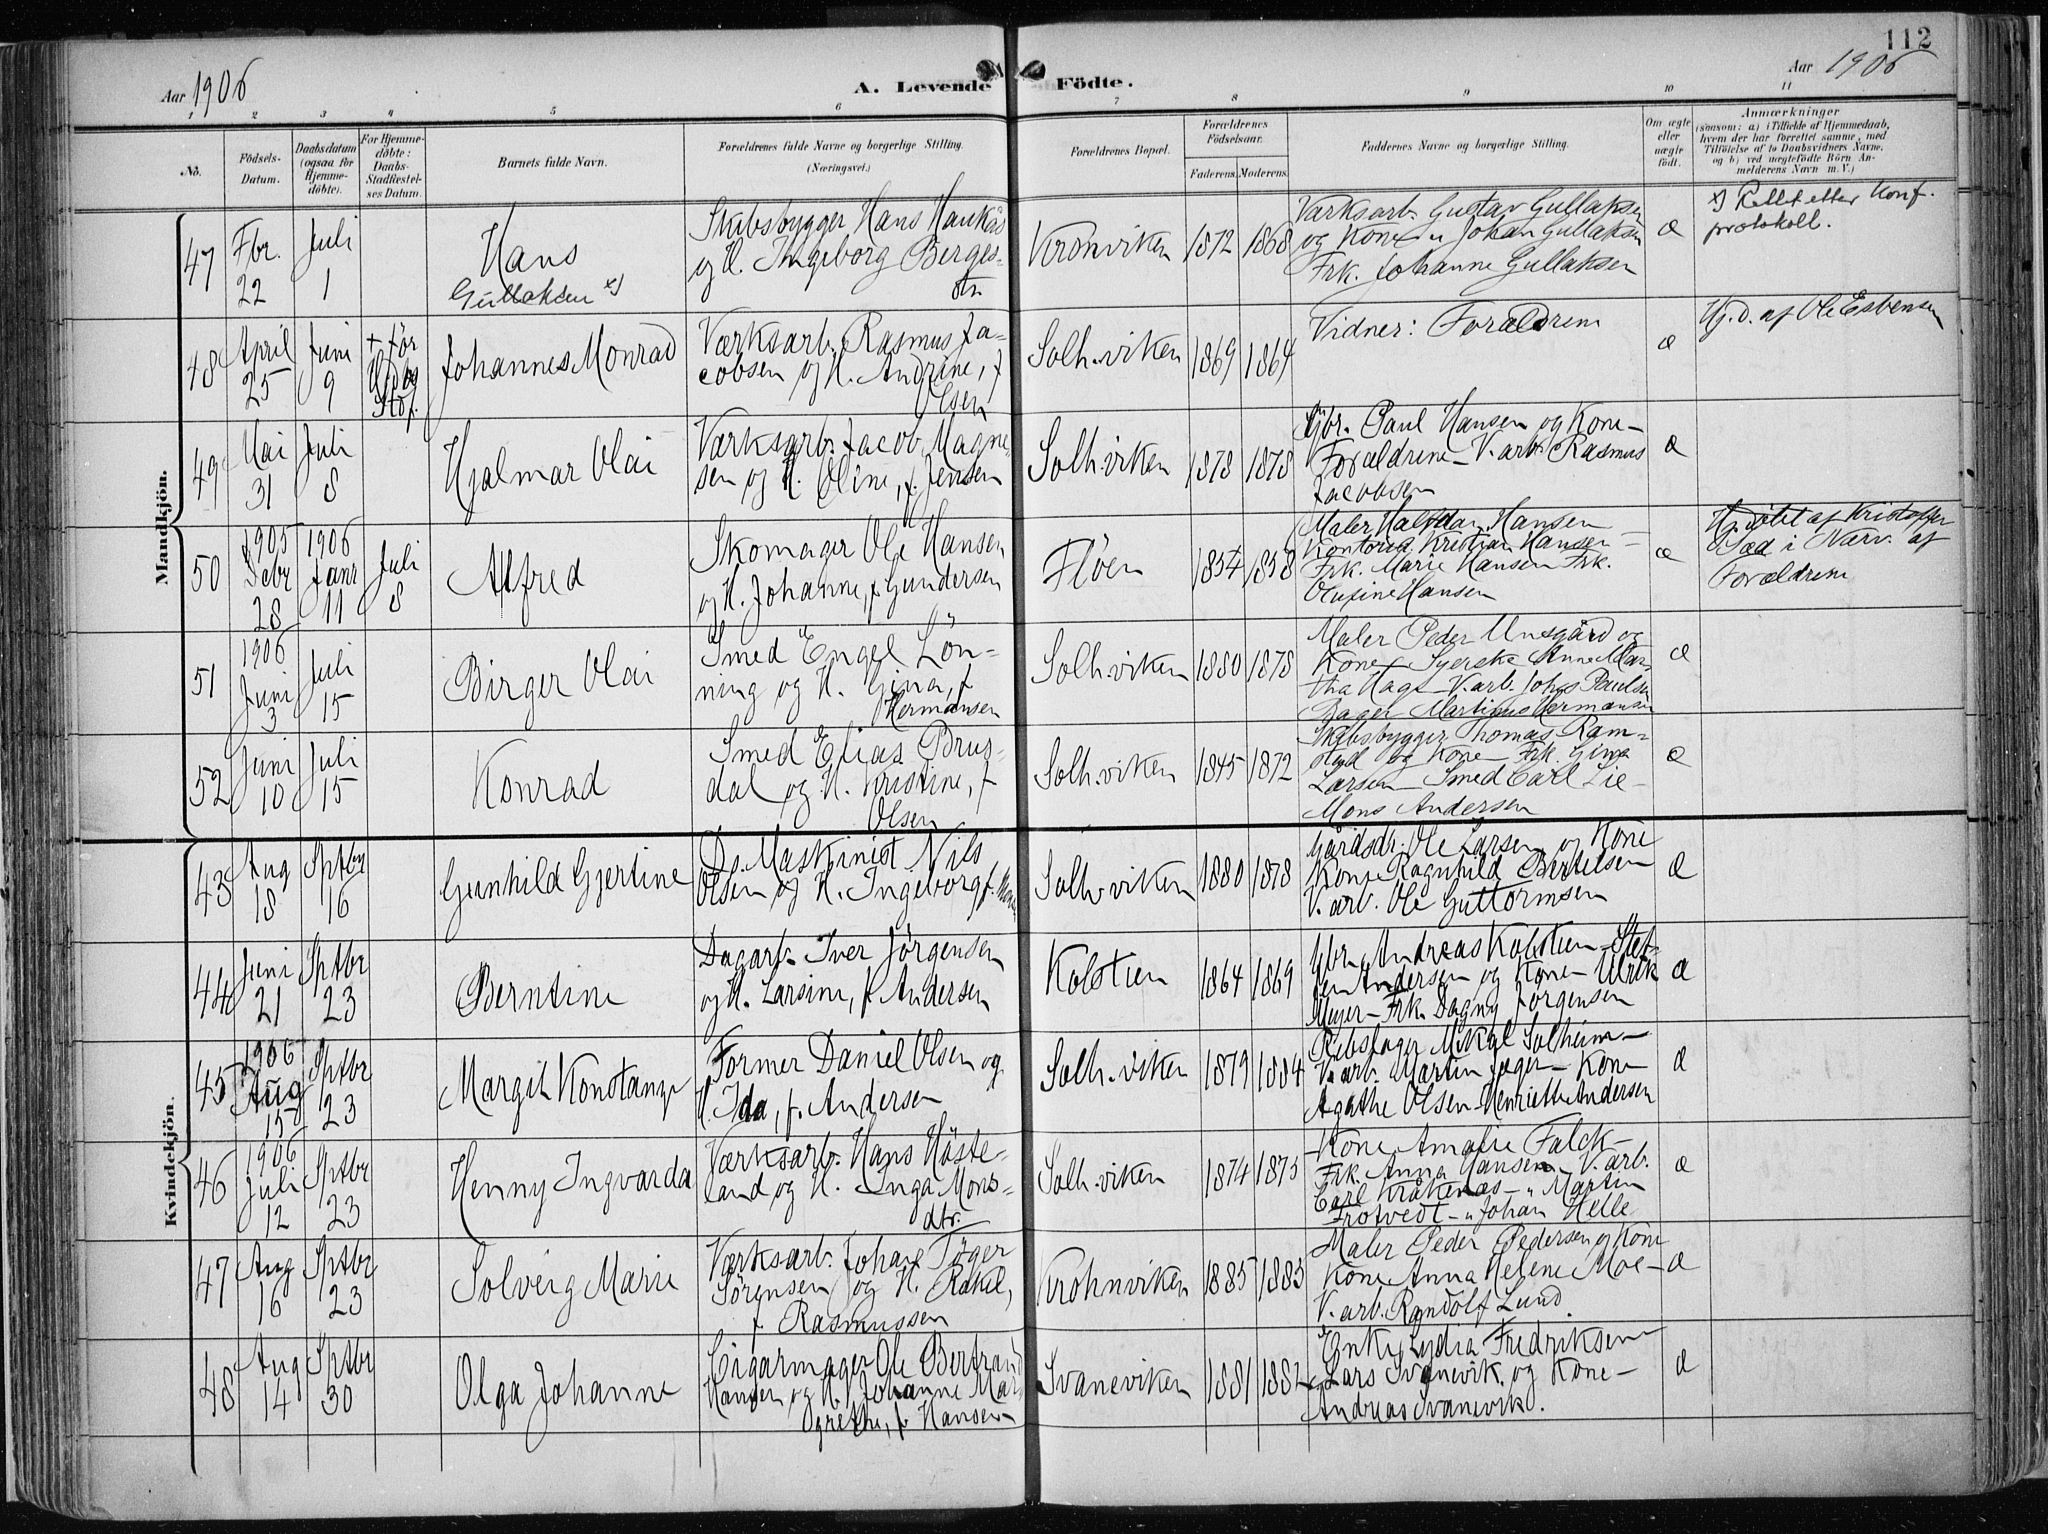 112
Aar 1906
A. Levende Födte.
Aar 1906
1 2 3 4 5 6 7 8 9 10 11
No.
Födsels-Datum.
Daabsdatum (ogsaa for Hjemme-döbte).
For Hjemme-döbte: Daabs-Stadfæstel-ses Datum.
Barnets fulde Navn.
Forældrenes fulde Navne og borgerlige Stilling.
(Næringsvei.)
Forældrenes Bopæl.
Forældrenes Födselsaar.
Faderens. Moderens.
Faddernes Navne og borgerlige Stilling.
Om ægte eller uægte födt.
Anmærkninger
(saasom: a) i Tilfælde af Hjemmedaab, hvem der har forrettet samme, med Tilföielse af to Daabsvidners Navne, og b) ved uægtefödte Börn An-melderens Navn m. V.)
Mandkjön.
47 Fbr. 22 Juli 1
Hans
Gullaksen x)
Skibsbygger Hans Haukås
og H. Ingeborg Berges-
dtr.
Kronviken 1872 1868
Værksarb. Gustav Gullaksen
og Kone - " Johan Gullaksen
Frk. Johanne Gullaksen
æ
x) Rettet etter Konf.
protokoll.
48 April 25 Juni 9
+ før
Johannes Monrad
Værksarb. Rasmus Ja-
cobsen og H. Andrine, f.
Olsen
Solh.viken 1869 1864
Vidner: Forældrene
æ
Hj.d. af Ole Esbensen
49 Mai 31 Juli 8
Hjalmar Olai
Værksarb. Jacob Magne-
sen og H. Oline, f. Jensen
Solh.viken 1878 1878
Gbr. Paul Hansen og Kone -
Forældrene - V.arb. Rasmus
Jacobsen
æ
50 1905 Debr 28 1906 Janr 11 Juli 8
Alfred
Skomager Ole Hansen
og H. Johanne, f. Gundersen
Fløen 1854 1858
Maler Halfdan Hansen -
Kontorist Kristian Hansen -
Frk. Marie Hansen Frk.
Olufine Hansen
æ
Hj.døbt af Kristoffer
i Nærv. af
Forældrene
51 1906 Juni 3 Juli 15
Birger Olai
Smed Engel Lön-
ning og H. Gina, f.
Hermansen
Solh.viken 1880 1878
Maler Peder Unesgård og
Kone - Syerske Anne Mar-
tha Hage - V.arb. Johs Paulsen
Bager Martinus Hermansen
æ
52 Juni 10 Juli 15
Konrad
Smed Elias Brus-
dal og H. Kristine, f.
Olsen
Solh.viken 1845 1872
Skibsbygger Thomas Ram-
stad og Kone - Frk. Gina
Larsen - Smed Carl Lie -
Mons Andersen
æ
Kvindekjön.
43 Aug 18 Sptbr 16
Gunhild Gjertine
Ds. Maskinist Nils
Olsen og H. Ingeborg, f.
Solh.viken 1880 1878
Gårdsdr. Ole Larsen og Kone
Kone Ragnhild Bertelsen
V.arb. Ole Guttormsen
æ
44 Juni 21 Sptbr 23
Berntine
Dagarb. Iver Jörgensen
og H. Larsine, f. Andersen
Kolstien 1864 1869
Gbr. Andreas Kolstien - Stef-
fen Andersen og Kone - Ulrik
Meyer - Frk. Dagny Jörgensen
æ
45 1906 Aug 15 Sptbr 23
Margit Konstanze
Former Daniel Olsen og
H. Ida, f. Andersen
Solh.viken 1879 1884
Rebslager Mikal Solheim -
V.arb. Martin Jæger - Kone
Agathe Olsen - Henriette Andersen
æ
46 1906 Juli 12 Sptbr 23
Henny Ingvarda
Værksarb. Hans Höste-
land og H. Inga Mons-
dtr.
Solh.viken 1874 1873
Kone Amalie Falck -
Frk. Anna Hansen - V.arb.
Carl Kråkenæs - " Martin
Trotvedt - " Johan Helle
æ
47 Aug 16 Sptbr 23
Solveig Marie
Værksarb. Johan Töger
Sörensen og H. Rakel,
f. Rasmussen
Krohnviken 1885 1883
Maler Peder Pedersen og Kone
Kone Anna Helene Moe -
V.arb. Randolf Lund.
æ
48 Aug 14 Sptbr 30
Olga Johanne
Cigarmager Ole Bertrand
Hansen og H. Johanne Mar-
grethe, f. Hansen
Svaneviken 1881 1882
Enke Lydia Fredriksen
Lars Svanevik og Kone -
Andreas Svanevik.
æ